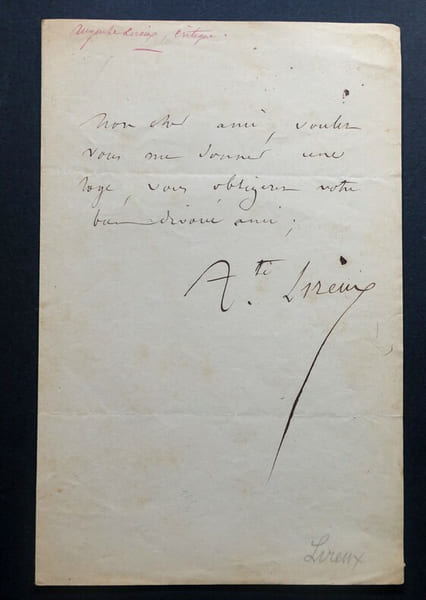 Auguste Lireux, critique.
Mon cher ami, voulez
vous me donner une
loge, vous obligerez votre
bien dévoué ami;
A.te Lireux
Lireux